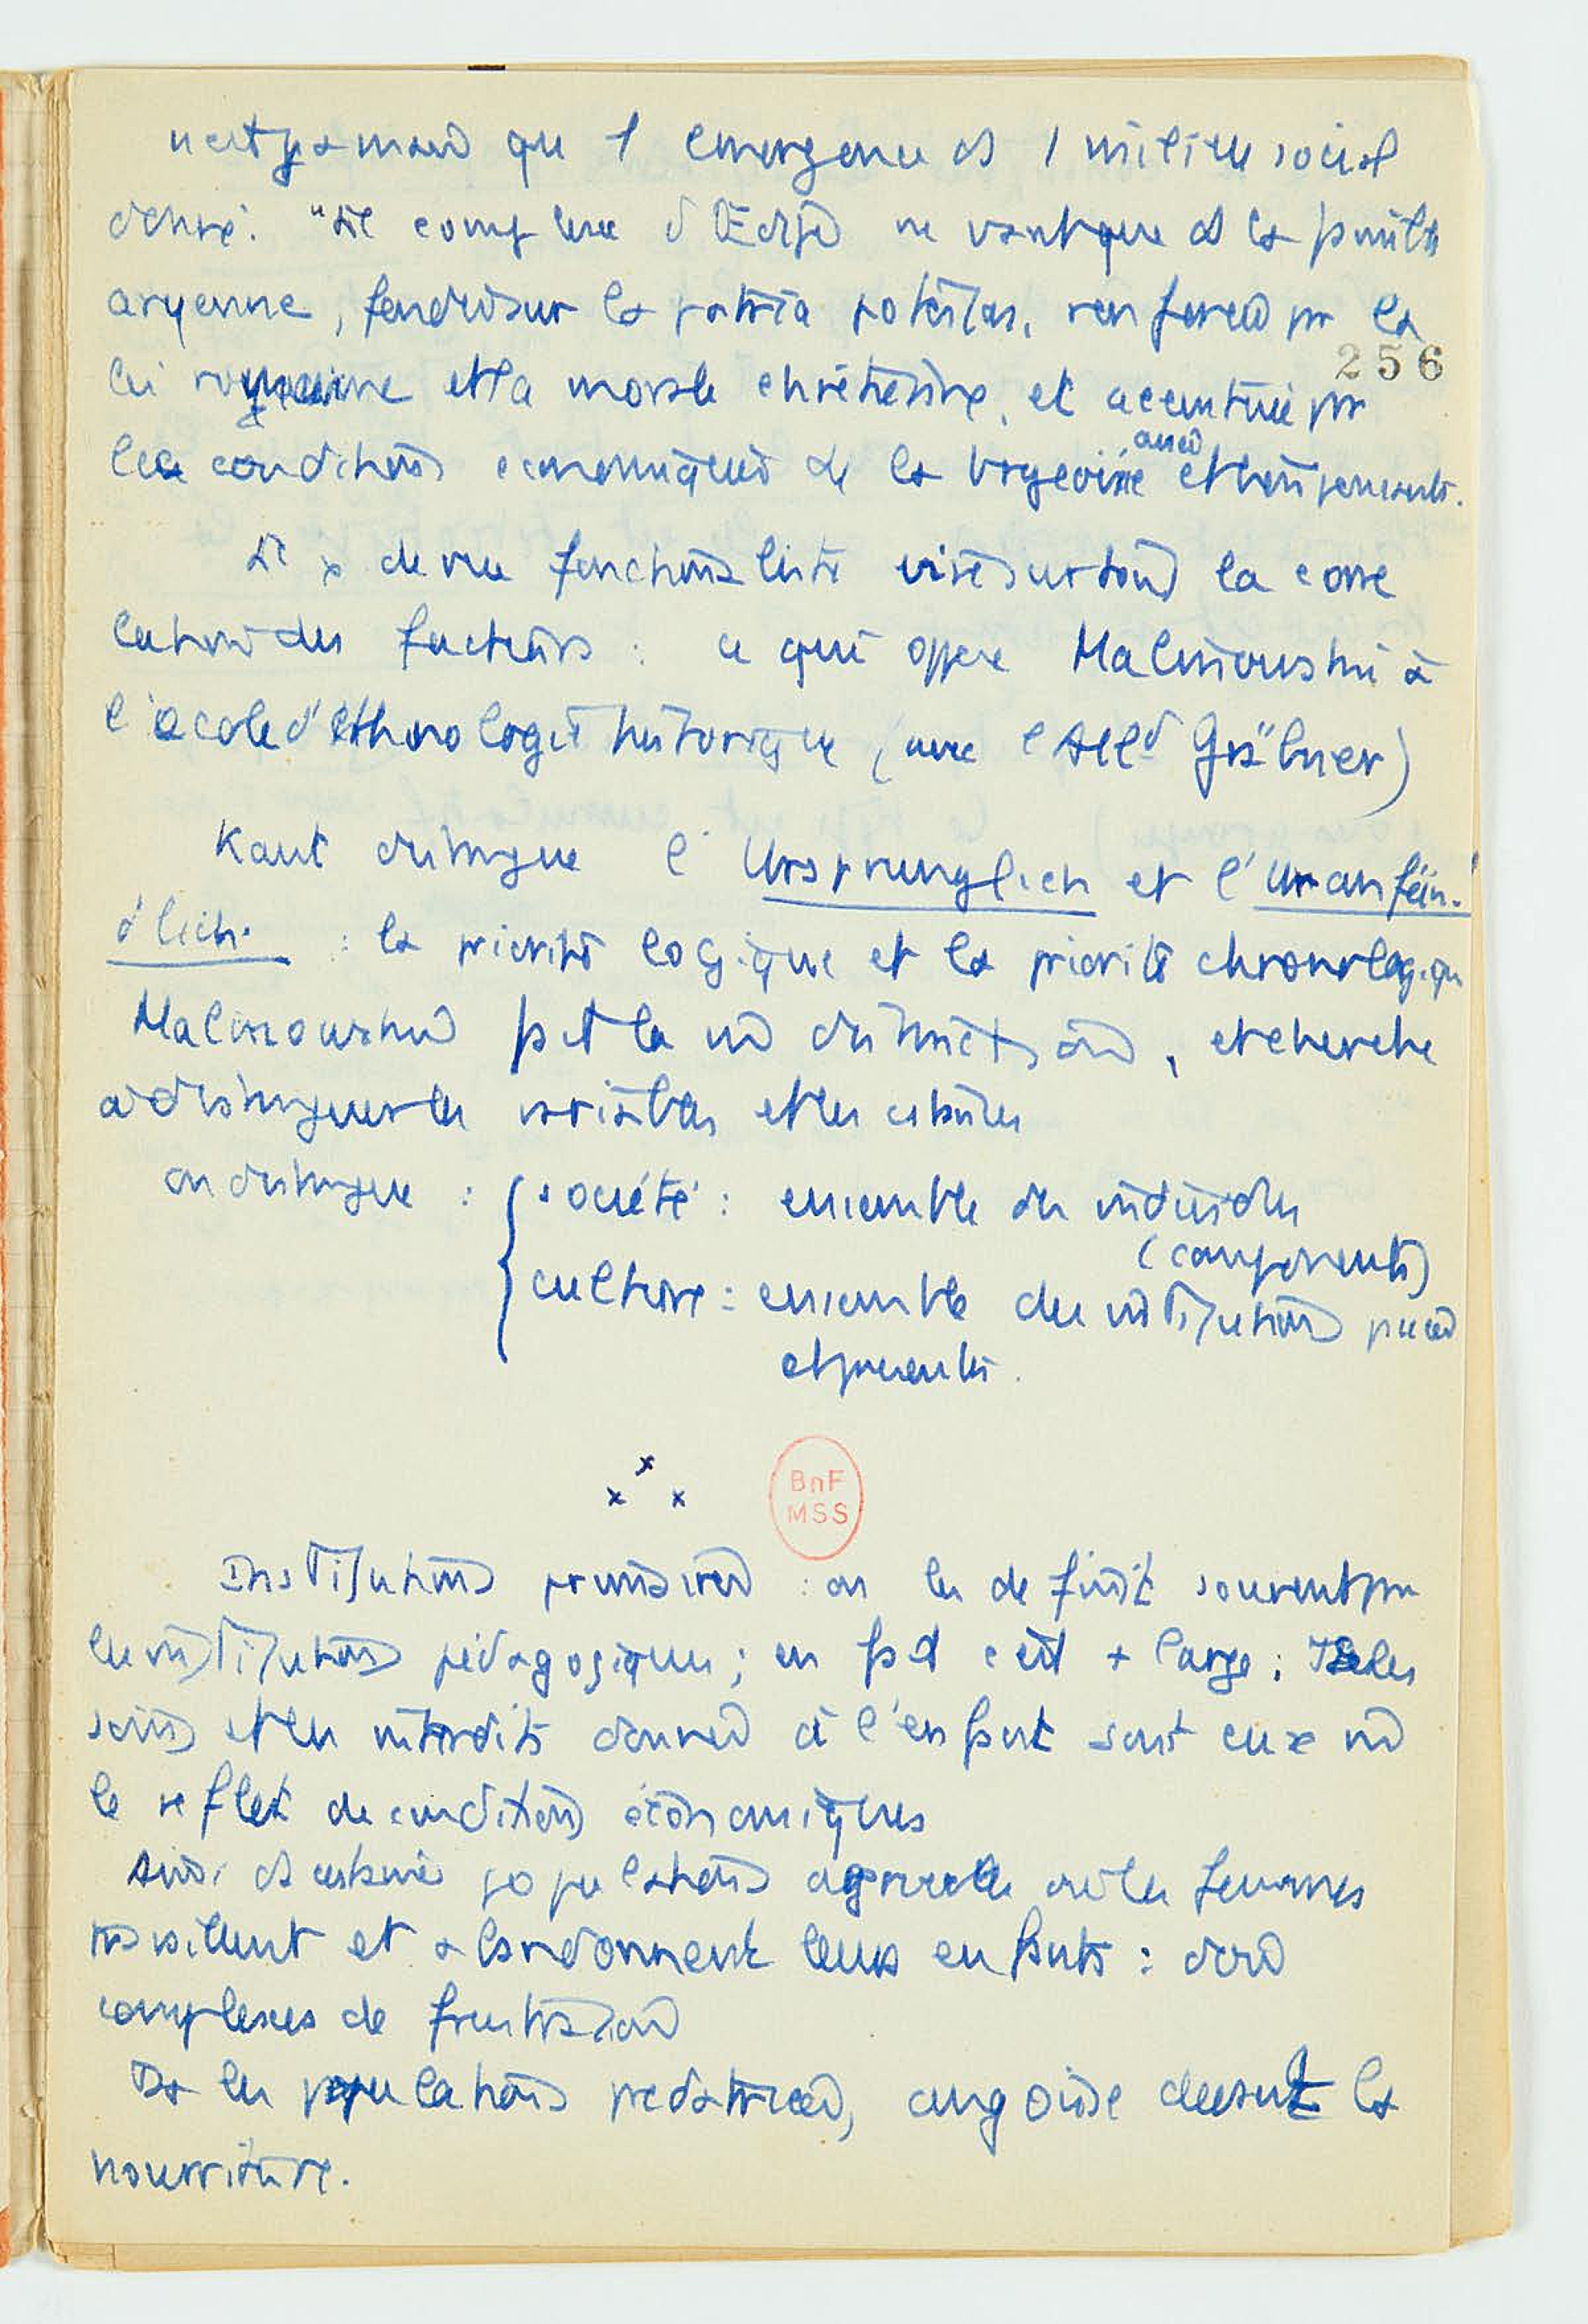 n'est jamais que l'émergence ds 1 milieu social
donné. "Le complexe d'Œdipe ne vaut que ds la famille
aryenne, fondée sur la patria potestas, renforcée par la
256
loi romaine et la morale chrétienne, et accentuée par
les conditions économiques de la bourgeoisie aisée et
Le pt de vue fonctionaliste vise surtout la corré
lation des facteurs : ce qui oppose Malinowski à
l'école d'ethnologie historique (avec l'Alld Gräbner)
Kant distingue l'Ursprunglich et l'Uranfän-
glich : la priorité logique et la priorité chronologique
Malinowski fait la m̂ distinction, et cherche
à distinguer les variables et les
on distingue : société : ensemble des individus
(components)
culture : ensemble des institutions
et
BnF
MSS
Institutions primaires : on les définit souvent par
les institutions pédagogiques ; en fait c'est + large ; les
soins et les interdits donnés à l'enfant sont eux m̂
le reflet de conditions économiques
Ainsi ds certaines populations agricoles où les femmes
travaillent et abandonnent leurs enfants : d'où
complexes de frustration
Ds les populations angoisse devant la
nourriture.